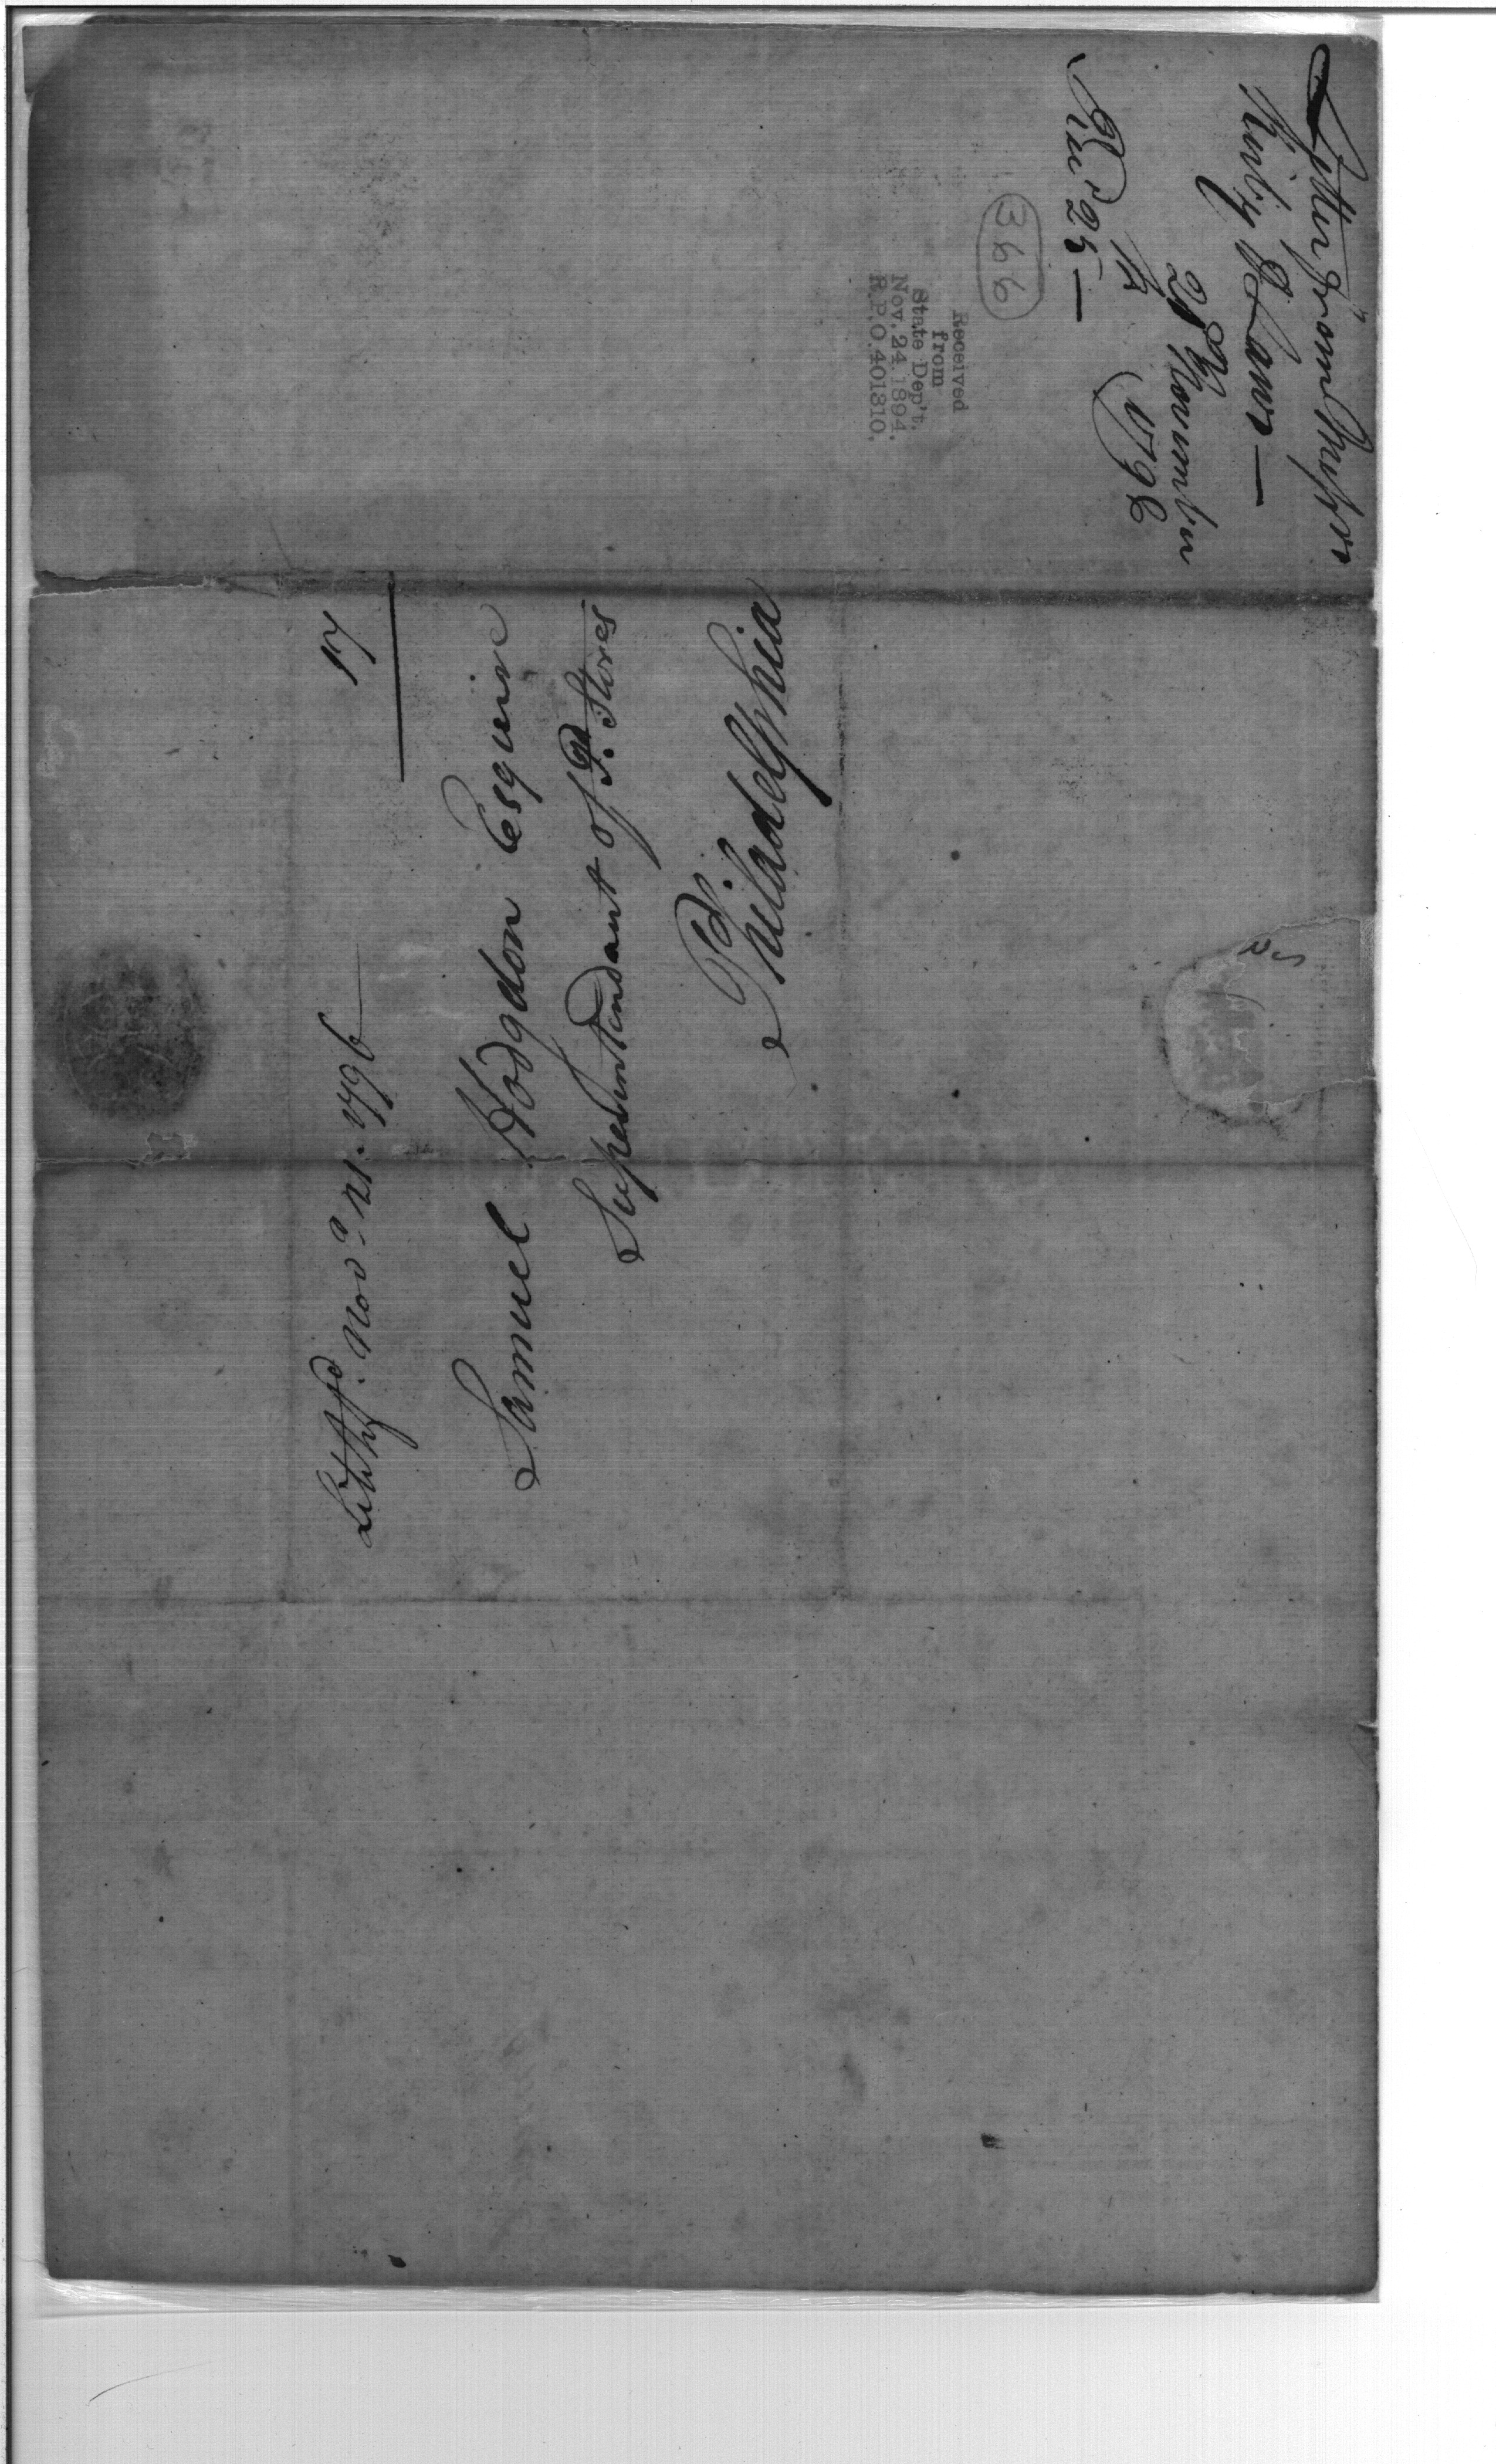 Letter from Messrs
Kirby & Laws —
28th November
1796
Recd 25th —
366
Received
from
State Dep't.
Nov. 24. 1894.
R.P.O. 401310.
Litchfd. Novr 21. 1796
17
Samuel Hodgdon Esquire
Superintendant of P. Stores
Philadelphia